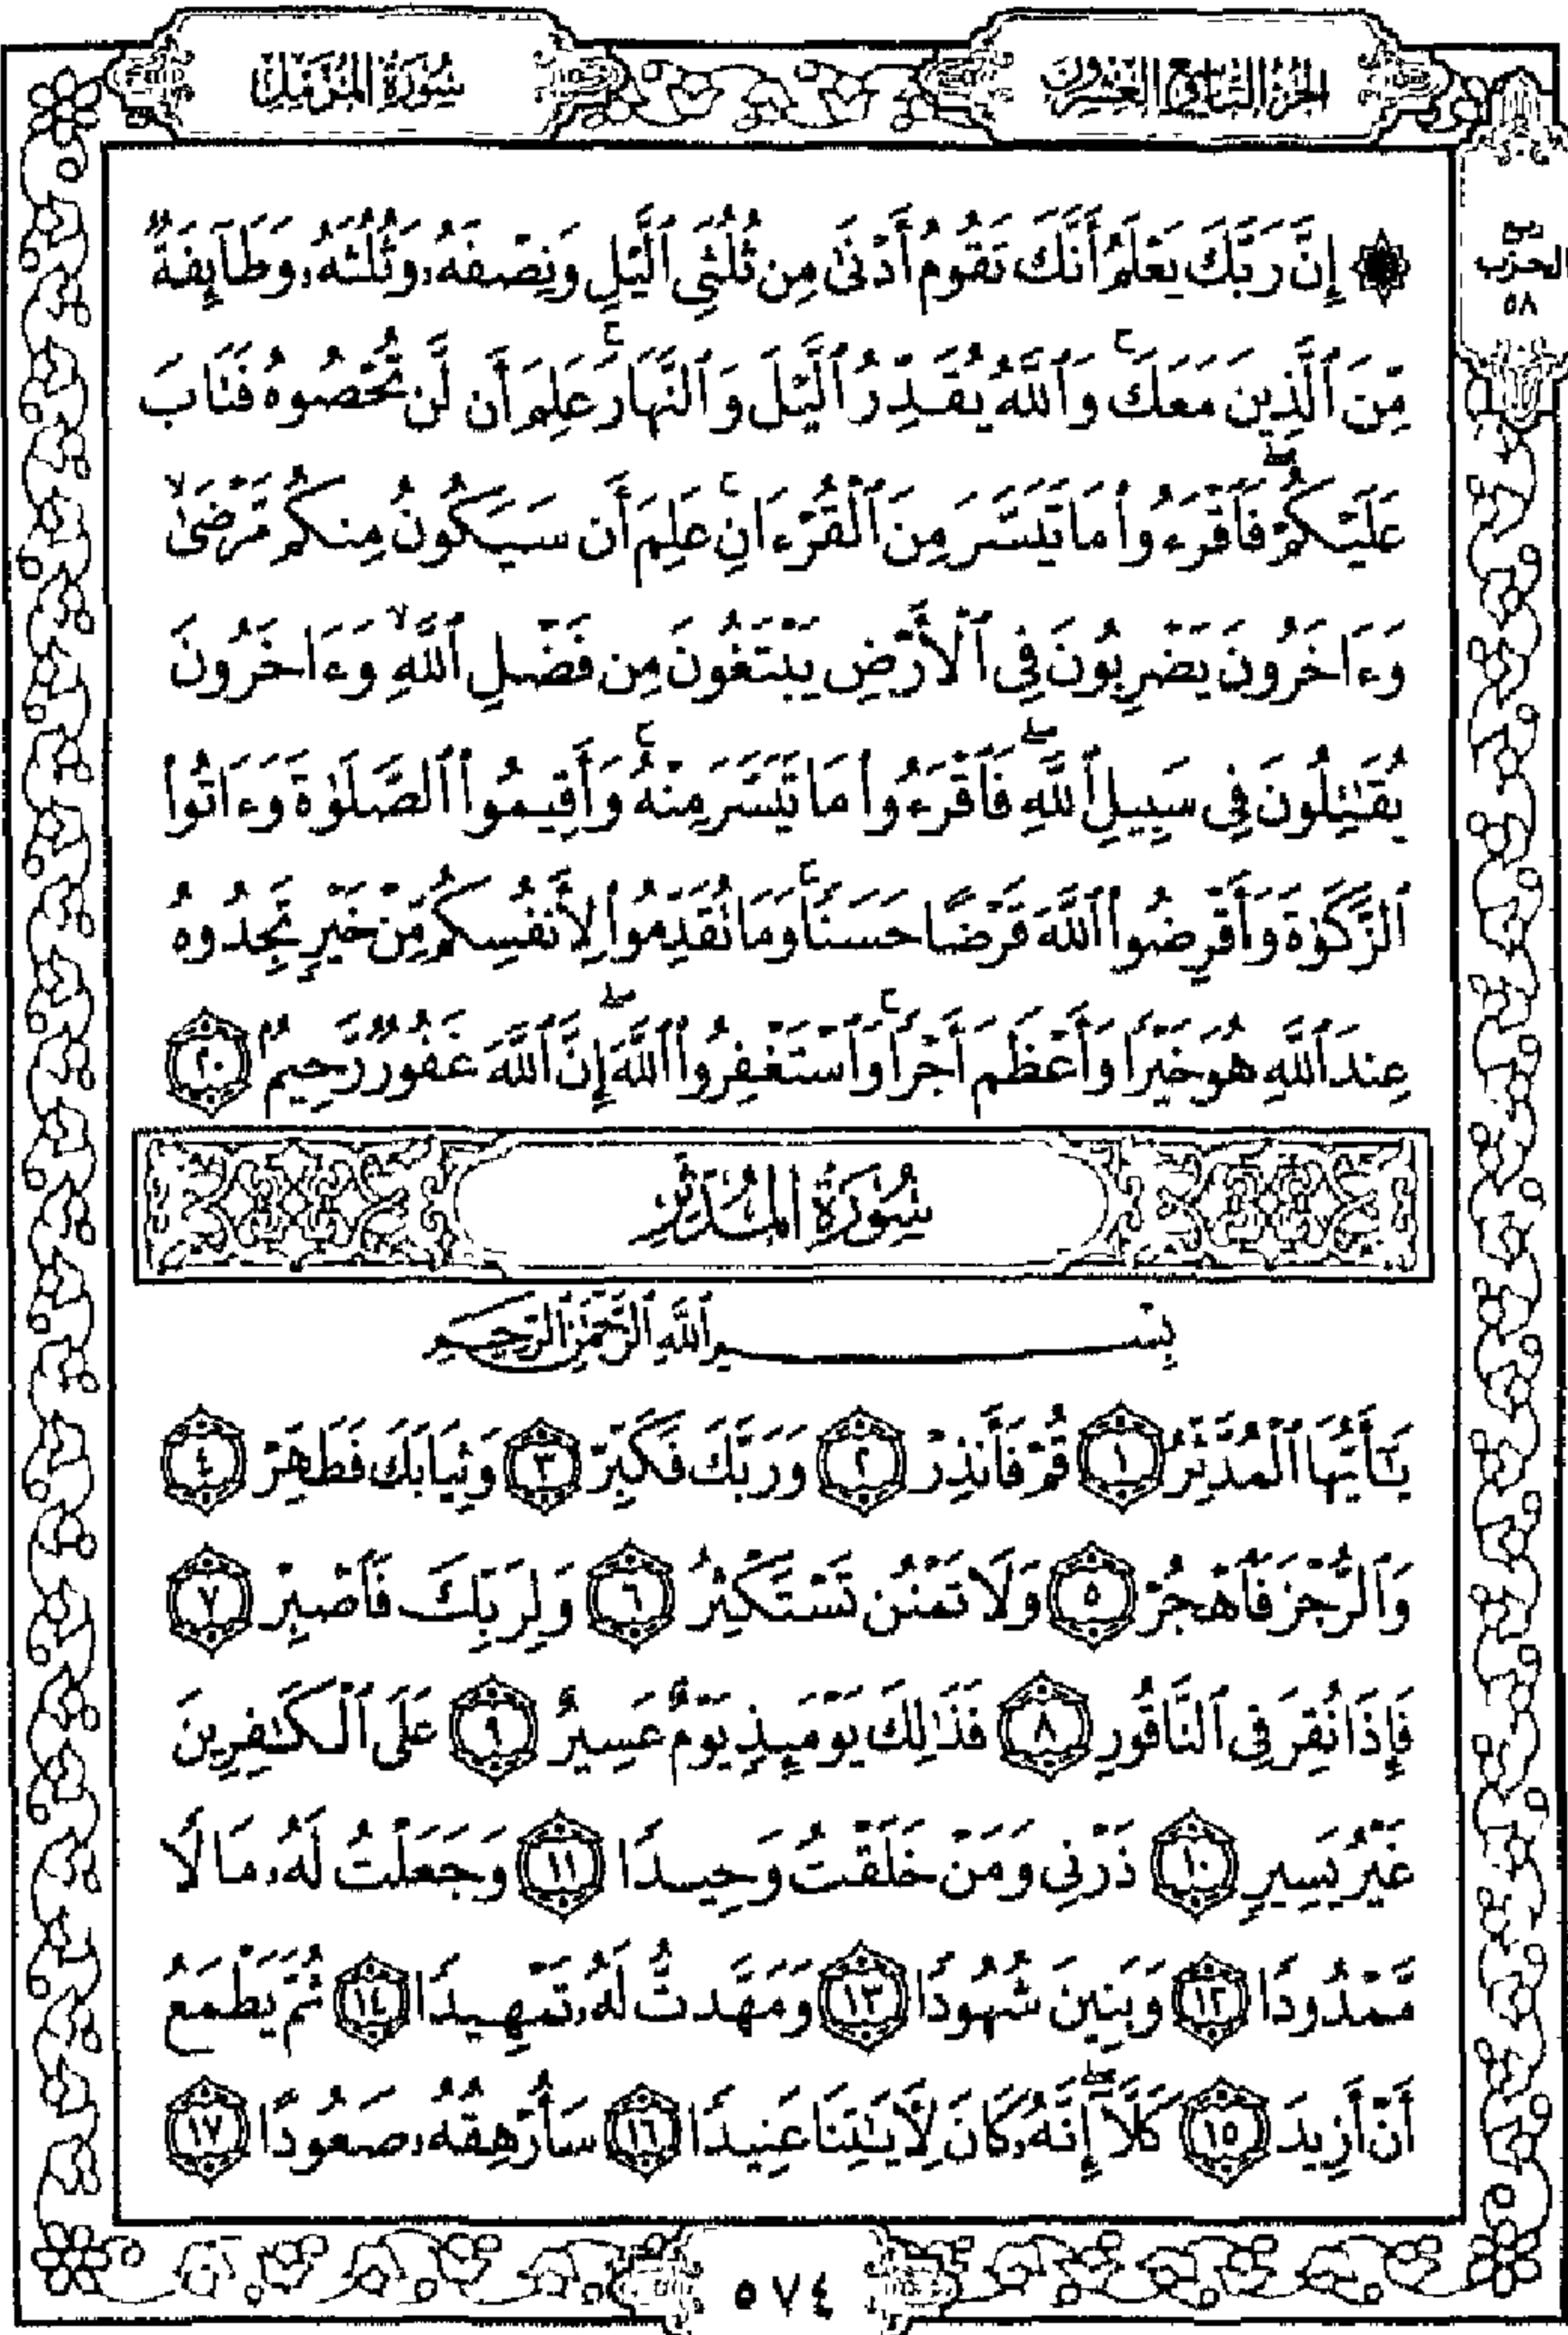 الجزء التاسع والعشرون
سورة المزمل
ربع
الحزب
٥٨
۞ إِنَّ رَبَّكَ يَعْلَمُ أَنَّكَ تَقُومُ أَدْنَىٰ مِن ثُلُثَىِ ٱلَّيْلِ وَنِصْفَهُۥ وَثُلُثَهُۥ وَطَآئِفَةٌ
مِّنَ ٱلَّذِينَ مَعَكَ ۚ وَٱللَّهُ يُقَدِّرُ ٱلَّيْلَ وَٱلنَّهَارَ ۚ عَلِمَ أَن لَّن تُحْصُوهُ فَتَابَ
عَلَيْكُمْ ۖ فَٱقْرَءُوا۟ مَا تَيَسَّرَ مِنَ ٱلْقُرْءَانِ ۚ عَلِمَ أَن سَيَكُونُ مِنكُم مَّرْضَىٰ ۙ
وَءَاخَرُونَ يَضْرِبُونَ فِى ٱلْأَرْضِ يَبْتَغُونَ مِن فَضْلِ ٱللَّهِ ۙ وَءَاخَرُونَ
يُقَـٰتِلُونَ فِى سَبِيلِ ٱللَّهِ ۖ فَٱقْرَءُوا۟ مَا تَيَسَّرَ مِنْهُ ۚ وَأَقِيمُوا۟ ٱلصَّلَوٰةَ وَءَاتُوا۟
ٱلزَّكَوٰةَ وَأَقْرِضُوا۟ ٱللَّهَ قَرْضًا حَسَنًا ۚ وَمَا تُقَدِّمُوا۟ لِأَنفُسِكُم مِّنْ خَيْرٍ تَجِدُوهُ
عِندَ ٱللَّهِ هُوَ خَيْرًا وَأَعْظَمَ أَجْرًا ۚ وَٱسْتَغْفِرُوا۟ ٱللَّهَ ۖ إِنَّ ٱللَّهَ غَفُورٌ رَّحِيمٌۢ ٢٠
سُورَةُ المُدَّثِّرِ
بِسْمِ ٱللَّهِ ٱلرَّحْمَـٰنِ ٱلرَّحِيمِ
يَـٰٓأَيُّهَا ٱلْمُدَّثِّرُ ١ قُمْ فَأَنذِرْ ٢ وَرَبَّكَ فَكَبِّرْ ٣ وَثِيَابَكَ فَطَهِّرْ ٤
وَٱلرُّجْزَ فَٱهْجُرْ ٥ وَلَا تَمْنُن تَسْتَكْثِرُ ٦ وَلِرَبِّكَ فَٱصْبِرْ ٧
فَإِذَا نُقِرَ فِى ٱلنَّاقُورِ ٨ فَذَٰلِكَ يَوْمَئِذٍ يَوْمٌ عَسِيرٌ ٩ عَلَى ٱلْكَـٰفِرِينَ
غَيْرُ يَسِيرٍ ١٠ ذَرْنِى وَمَنْ خَلَقْتُ وَحِيدًا ١١ وَجَعَلْتُ لَهُۥ مَالًا
مَّمْدُودًا ١٢ وَبَنِينَ شُهُودًا ١٣ وَمَهَّدتُّ لَهُۥ تَمْهِيدًا ١٤ ثُمَّ يَطْمَعُ
أَنْ أَزِيدَ ١٥ كَلَّآ ۖ إِنَّهُۥ كَانَ لِـَٔايَـٰتِنَا عَنِيدًا ١٦ سَأُرْهِقُهُۥ صَعُودًا ١٧
٥٧٤